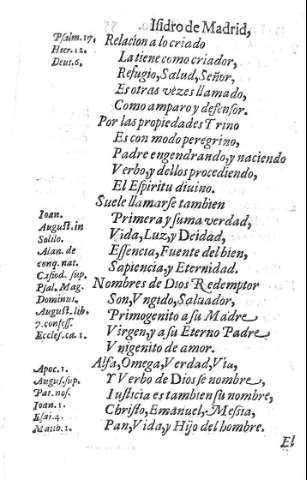 Isidro de Madrid,
Psalm.17.
Hier.12.
Deut.6.
Relacion a lo criado
La tiene como criador,
Refugio, Salud, Señor,
Es otras vezes llamado,
Como amparo y defensor.
Por las propiedades Trino
Es con modo peregrino,
Padre engendrando, y naciendo
Verbo, y dellos procediendo,
El Espiritu diuino.
Ioan.
August. in
Solilo.
Alan. de
conq. nat.
Casiod. sup.
Psal. Mag.
Dominus,
August. lib.
7. confess.
Eccles. ca.1.
Suele llamarse tambien
Primera y suma verdad,
Vida, Luz, y Deidad,
Essencia, Fuente del bien,
Sapiencia, y Eternidad.
Nombres de Dios Redemptor
Son, Vngido, Saluador,
Primogenito a su Madre
Virgen, y a su Eterno Padre
Vnigenito de amor.
Apoc.1.
Augus. sup.
Pat. nos.
Ioan.1.
Esai.4.
Matth.1.
Alfa, Omega, Verdad, Via,
Y Verbo de Dios se nombre,
Iusticia es tambien su nombre,
Christo, Emanuel, Messia,
Pan, Vida, y Hijo del hombre.
El